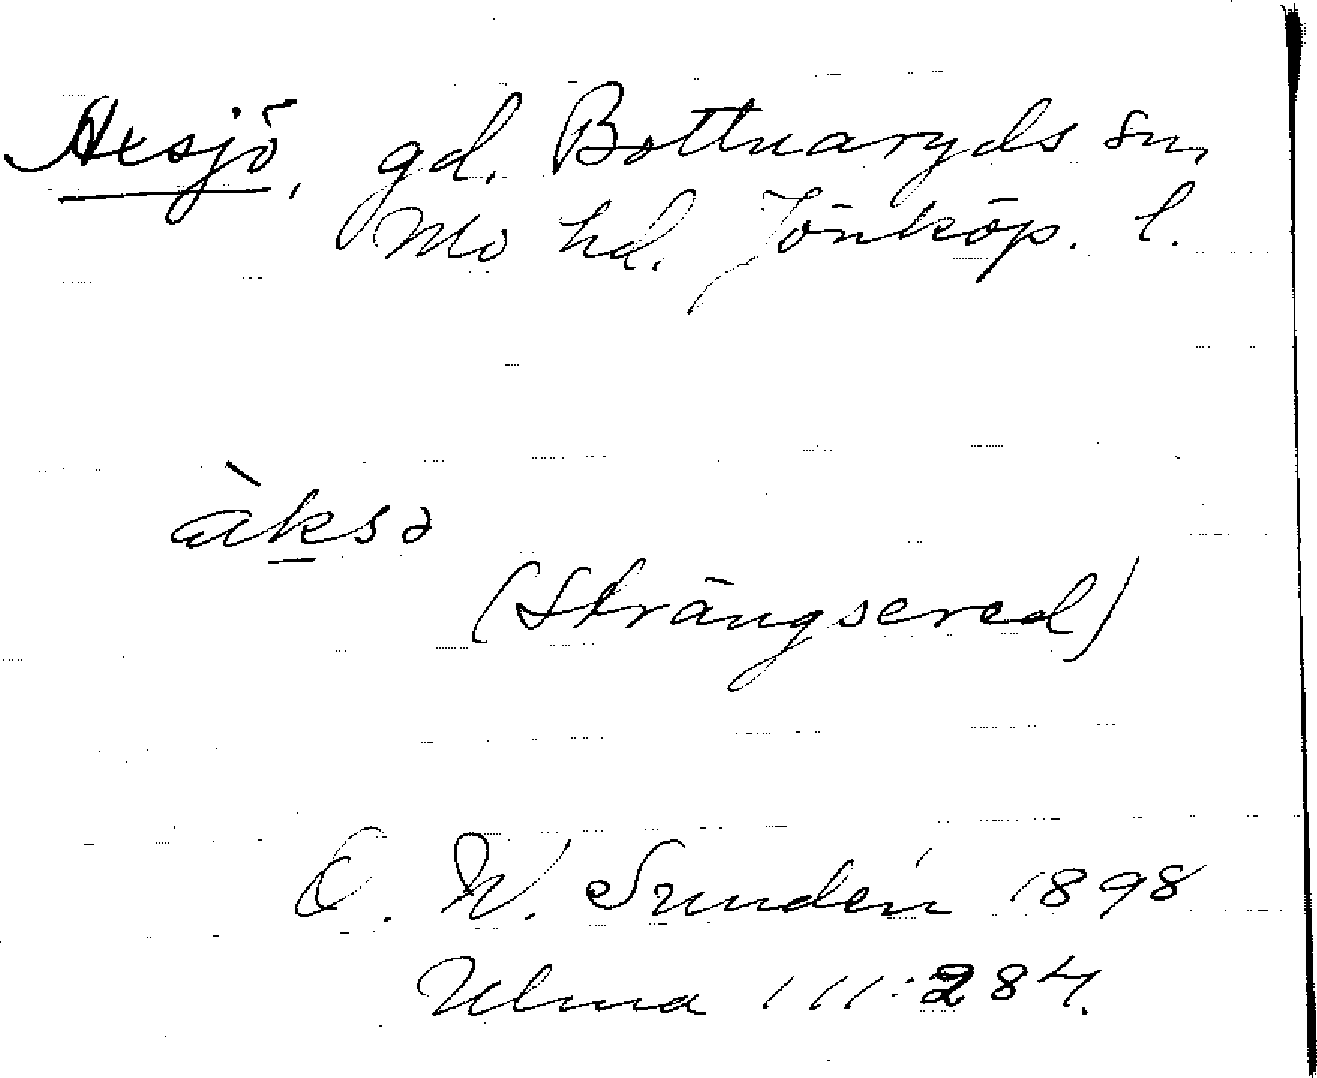 Axsjö, gd. Bottnaryds sn,
Mo hd. Jönköp. l.
àksə
(Strängsered)
O. W. Sundén 1898
Ulma 111:284.